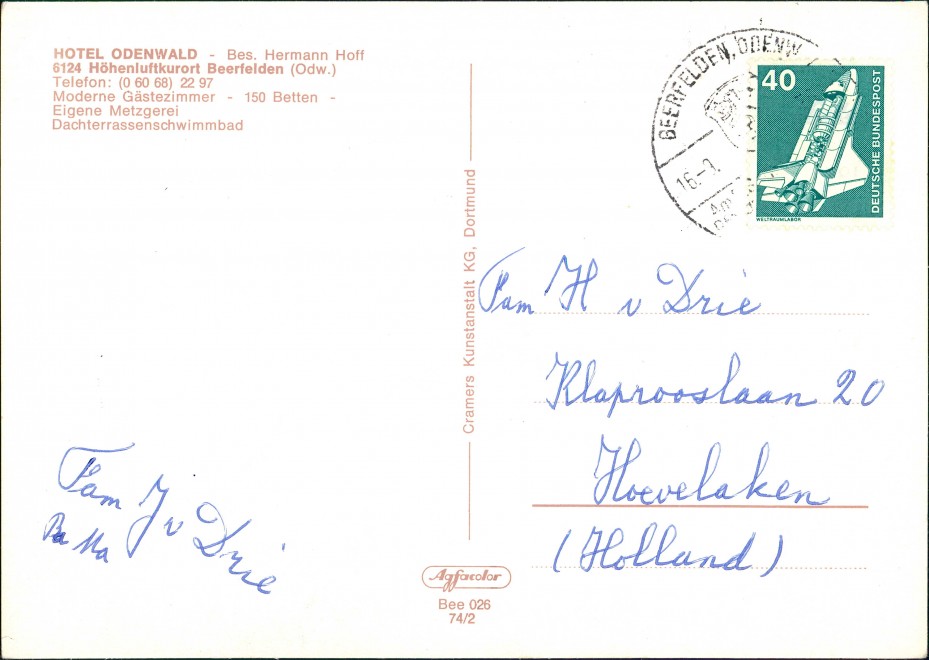 HOTEL ODENWALD - Bes. Hermann Hoff
6124 Höhenluftkurort Beerfelden (Odw.)
Telefon: (0 60 68) 22 97
Moderne Gästezimmer - 150 Betten -
Eigene Metzgerei
Dachterrassenschwimmbad
Fam J v Drie
Pa Ma
Cramers Kunstanstalt KG, Dortmund
Agfacolor
Bee 026
74/2
BEERFELDEN, ODENW
16.-9
40
DEUTSCHE BUNDESPOST
WELTRAUMLABOR
Fam H v Drie
Klaprooslaan 20
Hoevelaken
(Holland)